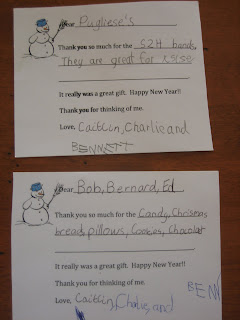 Dear Pugliese's
Thank you so much for the S2H bands,
They are great for
It really was a great gift. Happy New Year!!
Thank you for thinking of me.
Love, Caitlin, Charlie and
BENNETT
Dear Bob, Bernard, Ed
Thank you so much for the Candy, Christmas
bread, pillows, Cookies, Chocolat
It really was a great gift. Happy New Year!!
Thank you for thinking of me.
Love, Caitlin, Charlie, and
BENN